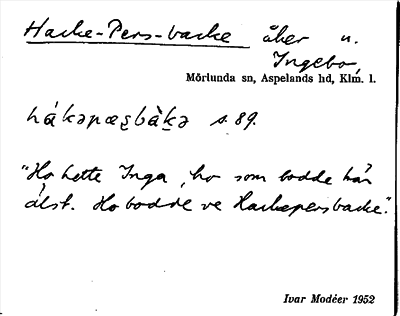 Hacke-Pers-backe åker u.
Ingebo,
Mörlunda sn, Aspelands hd, Klm. l.
hákəpæʂbàkə s. 89.
"Ho hette Inga, ho som bodde här
älst. Ho bodde ve Hackepersbacke".
Ivar Modéer 1952